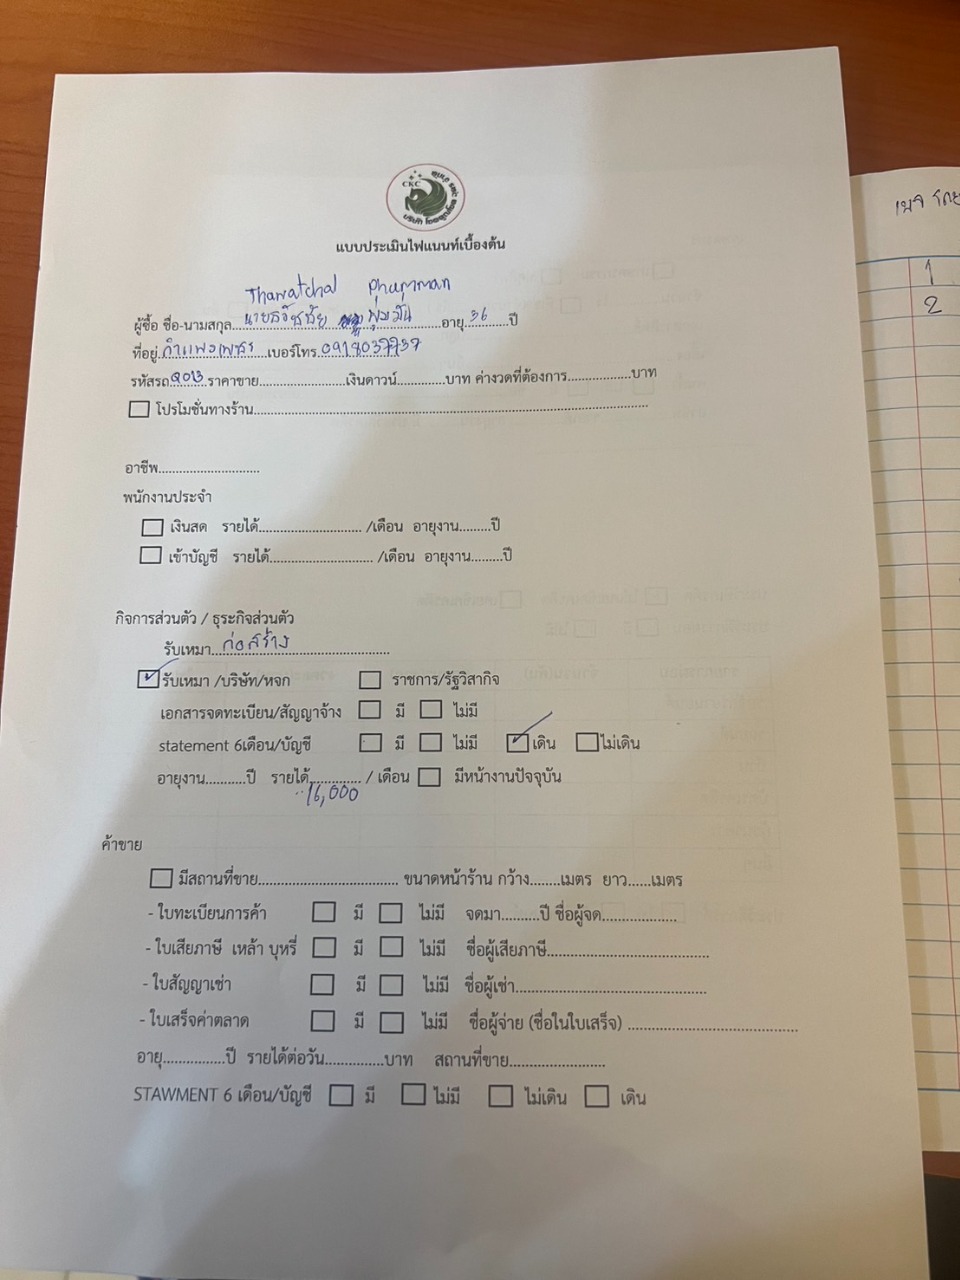 CKC
แบบประเมินไฟแนนท์เบื้องต้น
Thawatchai Phupman
ผู้ซื้อ ชื่อ-นามสกุล นายธวัชชัย พุ่มมั่น อายุ 36 ปี
ที่อยู่ กำแพงเพชร เบอร์โทร 0918037737
รหัสรถ 2013 ราคาขาย....................เงินดาวน์..............บาท ค่างวดที่ต้องการ..................บาท
โปรโมชั่นทางร้าน....................
อาชีพ.............................
พนักงานประจำ
เงินสด รายได้............................... /เดือน อายุงาน.........ปี
เข้าบัญชี รายได้.............................. /เดือน อายุงาน.........ปี
กิจการส่วนตัว / ธุระกิจส่วนตัว
รับเหมา ก่อสร้าง
รับเหมา /บริษัท/หจก ราชการ/รัฐวิสากิจ
เอกสารจดทะเบียน/สัญญาจ้าง มี ไม่มี
statement 6เดือน/บัญชี มี ไม่มี เดิน ไม่เดิน
อายุงาน...........ปี รายได้............... / เดือน มีหน้างานปัจจุบัน
16,000
ค้าขาย
มีสถานที่ขาย......................................... ขนาดหน้าร้าน กว้าง........เมตร ยาว......เมตร
- ใบทะเบียนการค้า มี ไม่มี จดมา..........ปี ชื่อผู้จด......................
- ใบเสียภาษี เหล้า บุหรี่ มี ไม่มี ชื่อผู้เสียภาษี................................................
- ใบสัญญาเช่า มี ไม่มี ชื่อผู้เช่า.........................................................
- ใบเสร็จค่าตลาด มี ไม่มี ชื่อผู้จ่าย (ชื่อในใบเสร็จ) ..................................................
อายุ..................ปี รายได้ต่อวัน.................บาท สถานที่ขาย............................
STAWMENT 6 เดือน/บัญชี มี ไม่มี ไม่เดิน เดิน
1
2